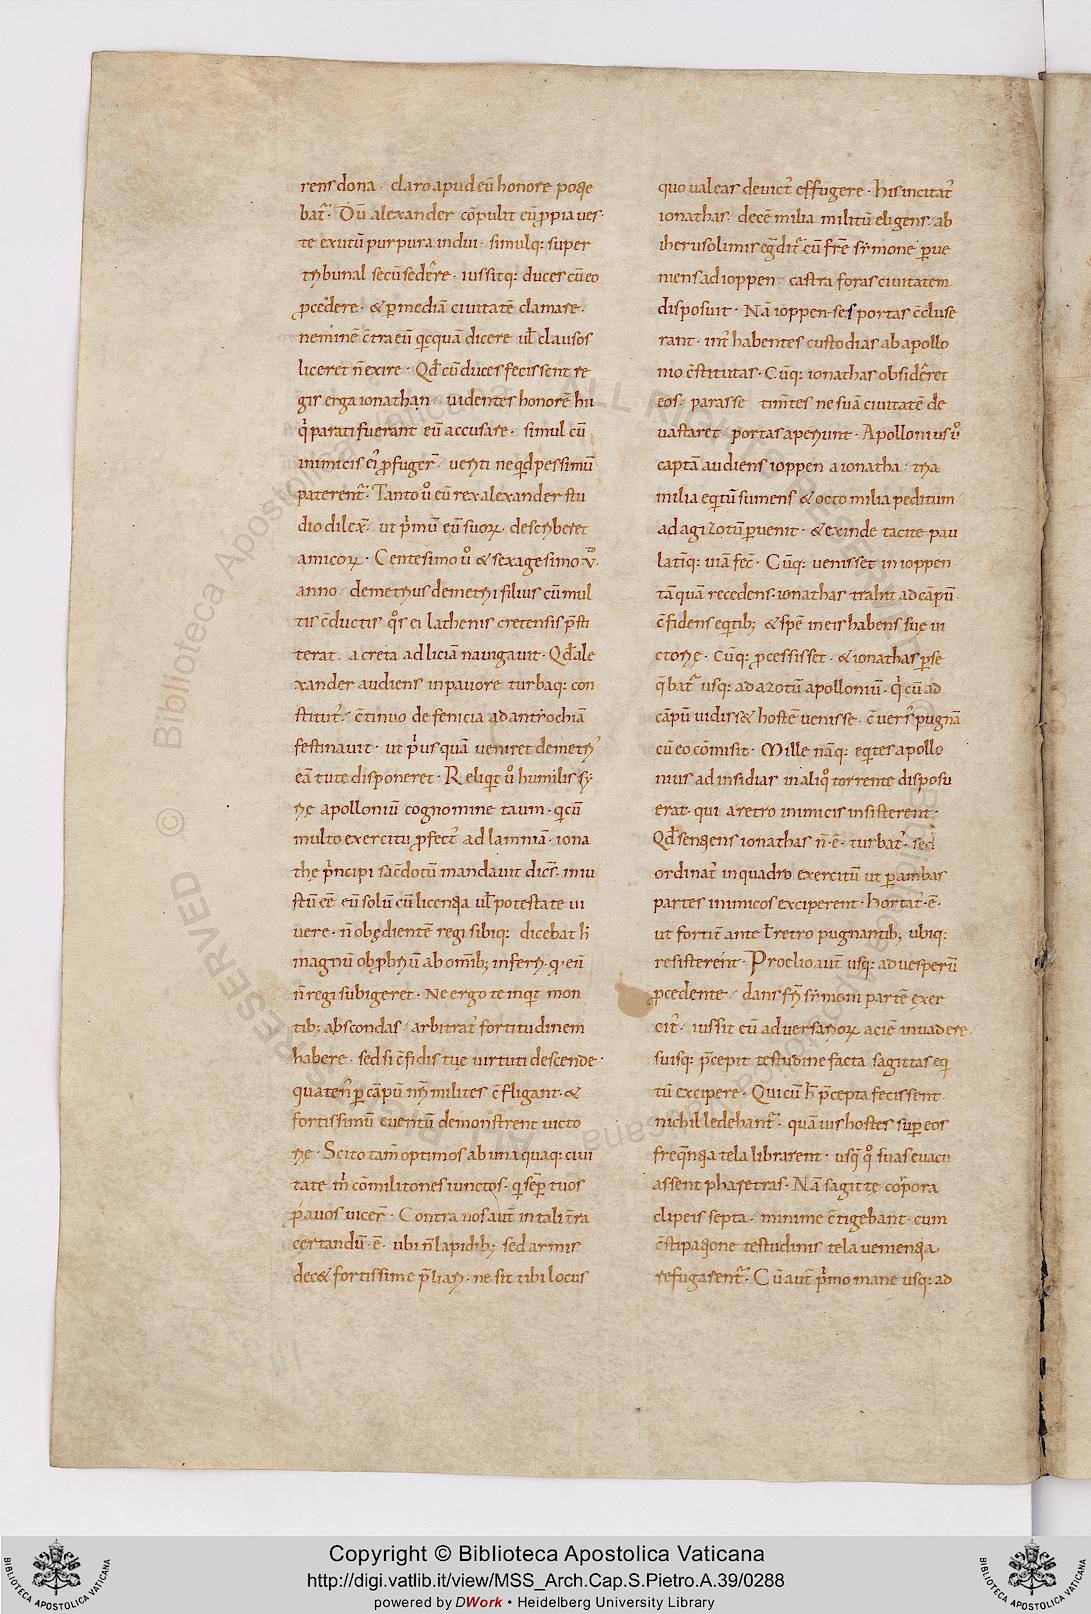 rens dona · claro apud eū honore polle
bat᷑· Dū alexander cōpulit eū ppia ues
te exutū purpura indui · simulq; super
tribunal secū sedere · iussitq; duces cū eo
pcedere · & p mediā ciuitatē clamare ·
neminē c̄tra eū qicquā dicere ul̄ clausos
liceret n̄ exire · Qd̄ cū duces fecissent re
gis erga ionathan · uidentes honorē hu
q̇ parati fuerant eū accusare · simul cū
inimicis ei᷑ pfuger̄ · ueriti ne qid pessimū
paterent᷑· Tanto u̇ eū rex alexander stu
dio dilex̄ · ut p̄mū eū suoꝝ describeret
amicoꝝ · Centesimo u̇ & sexagesimo v̊
anno · demetrius demetrii filius cū mul
tis c̄ductis q̊s ei lathenis cretensis p̄sti
terat · a creta ad liciā nauigauit · Qd̄ ale
xander audiens in pauore turbaq; con
stitut᷑ · c̄tinuo de fenicia ad antiochiā
festinauit · ut p̄us quā ueniret demetri᷑
eā tute disponeret · Reliqit u̇ humilis sy
rię apolloniū cognomine taum · qi cū
multo exercitu pfect᷑ ad lamniā · iona
thę p̄ncipi sac̄dotū mandauit dic̄s · iniu
stū c̄c̄ eū solū cū licentia ul̄ potestate ui
uere · n̄ obędientē regi sibiq; dicebat h̄
magnū obp̄briū ab omib; inferri · q eū
n̄ regi subigeret · Ne ergo te inqit mon
tib; abscondas · arbitrat᷑ fortitudinem
habere · sed si c̄fidis tuę uirtuti descende ·
quaten᷑ p cāpū nr̄i milites c̄fligant · &
fortissimū euentū demonstrent uicto
rię · Scito tam̄ optimos ab una quaq; ciui
tate m̄ cōmilitones iunctos · qi sep̄ tuos
pauos uicer̄ · Contra nos aut̄ in tali t̄ra
certandū · ē · ubi n̄ lapidib; sed armis
dec& fortissime p̄liari · ne sit tibi locus
quo ualeas deuict᷑ effugere · his incitat᷑
ionathas · decē milia militū eligens · ab
iherusolimis eg̅dit᷑ cū fr̄e symone · pue
niens ad ioppen · castra foras ciuitatem
disposuit · Nā ioppenses portas c̄cluse
rant · int᷑ habentes custodias ab apollo
nio c̄stitutas · Cūq; ionathas obsideret
eos · parasse tim̄tes ne suā ciuitatē de
uastaret · portas aperiunt · Apollonius u̇
captā audiens ioppen a ionatha · tria
milia eqitū sumens & octo milia peditum
ad agizotū puenit · & exinde tacite pau
latīq; uiā fec̄ · Cūq; uenisset in ioppen ·
tāquā recedens · ionathas trahit ad cāpū ·
c̄fidens eqitib; & spē in eis habens suę ui
ctorię · Cūq; pcessisset · & ionathas pse
q̄bat᷑ usq; ad azotū apolloniū · q̇ cū ad
cāpū uidiss& hostē uenisse · c̄uers᷑ pugnā
cū eo cōmisit · Mille nāq; eqites apollo
nius ad insidias in aliq̊ torrente disposu
erat · qui a retro inimicis insisterent ·
Qd̄ sentiens ionathas n̄ · ē · turbat᷑ · sed
ordinat᷑ in quadro exercitū ut p ambas
partes inimicos exciperent · Hortat᷑ · ē ·
ut fortit᷑ ante l̄ retro pugnantib; ubiq;
resisterent · Proelio aut̄ usq; ad uesperū
pcedente · dans fr̄i symoni partē exer
cit᷑ · iussit eū aduersarioꝝ aciē inuadere ·
suisq; p̄cepit testudine facta sagittas eqi
tū excipere · Qui cū h̄ p̄cepta fecissent ·
nichil ledebant᷑ · quāuis hostes sup eos
freq̄ntia tela librarent · usq̄ q̊ suas euacu
assent pharetras · Nā sagittę corpora
clipeis septa · minime c̄tigebant · cum
c̄stipatione testudinis tela uenientia
refugarent᷑ · Cū aut̄ p̄mo mane usq; ad
Copyright © Biblioteca Apostolica Vaticana
http://digi.vatlib.it/view/MSS_Arch.Cap.S.Pietro.A.39/0288
powered by DWork • Heidelberg University Library